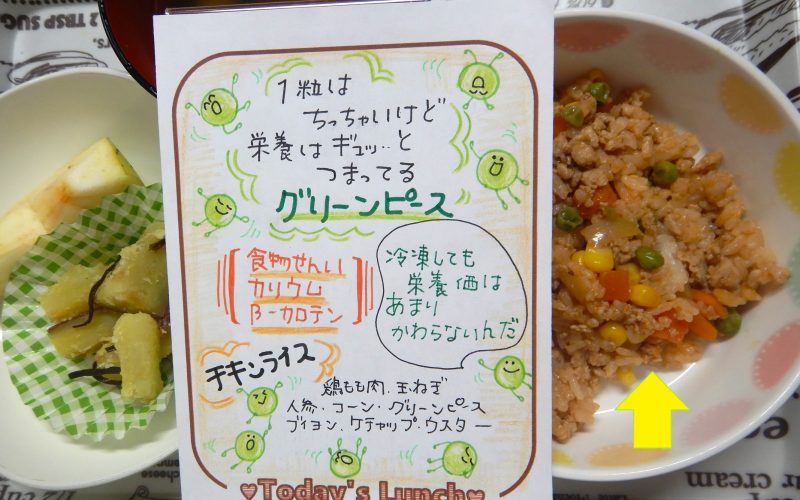 1粒は
ちっちゃいけど
栄養はギュッ‥と
つまってる
グリーンピース
食物せんい
カリウム
β-カロテン
冷凍しても
栄養価は
あまり
かわらないんだ
チキンライス
鶏もも肉、玉ねぎ
人参・コーン・グリーンピース
ブイヨン、ケチャップ、ウスター
♥Today's Lunch♥
2 TBSP SUG
cream